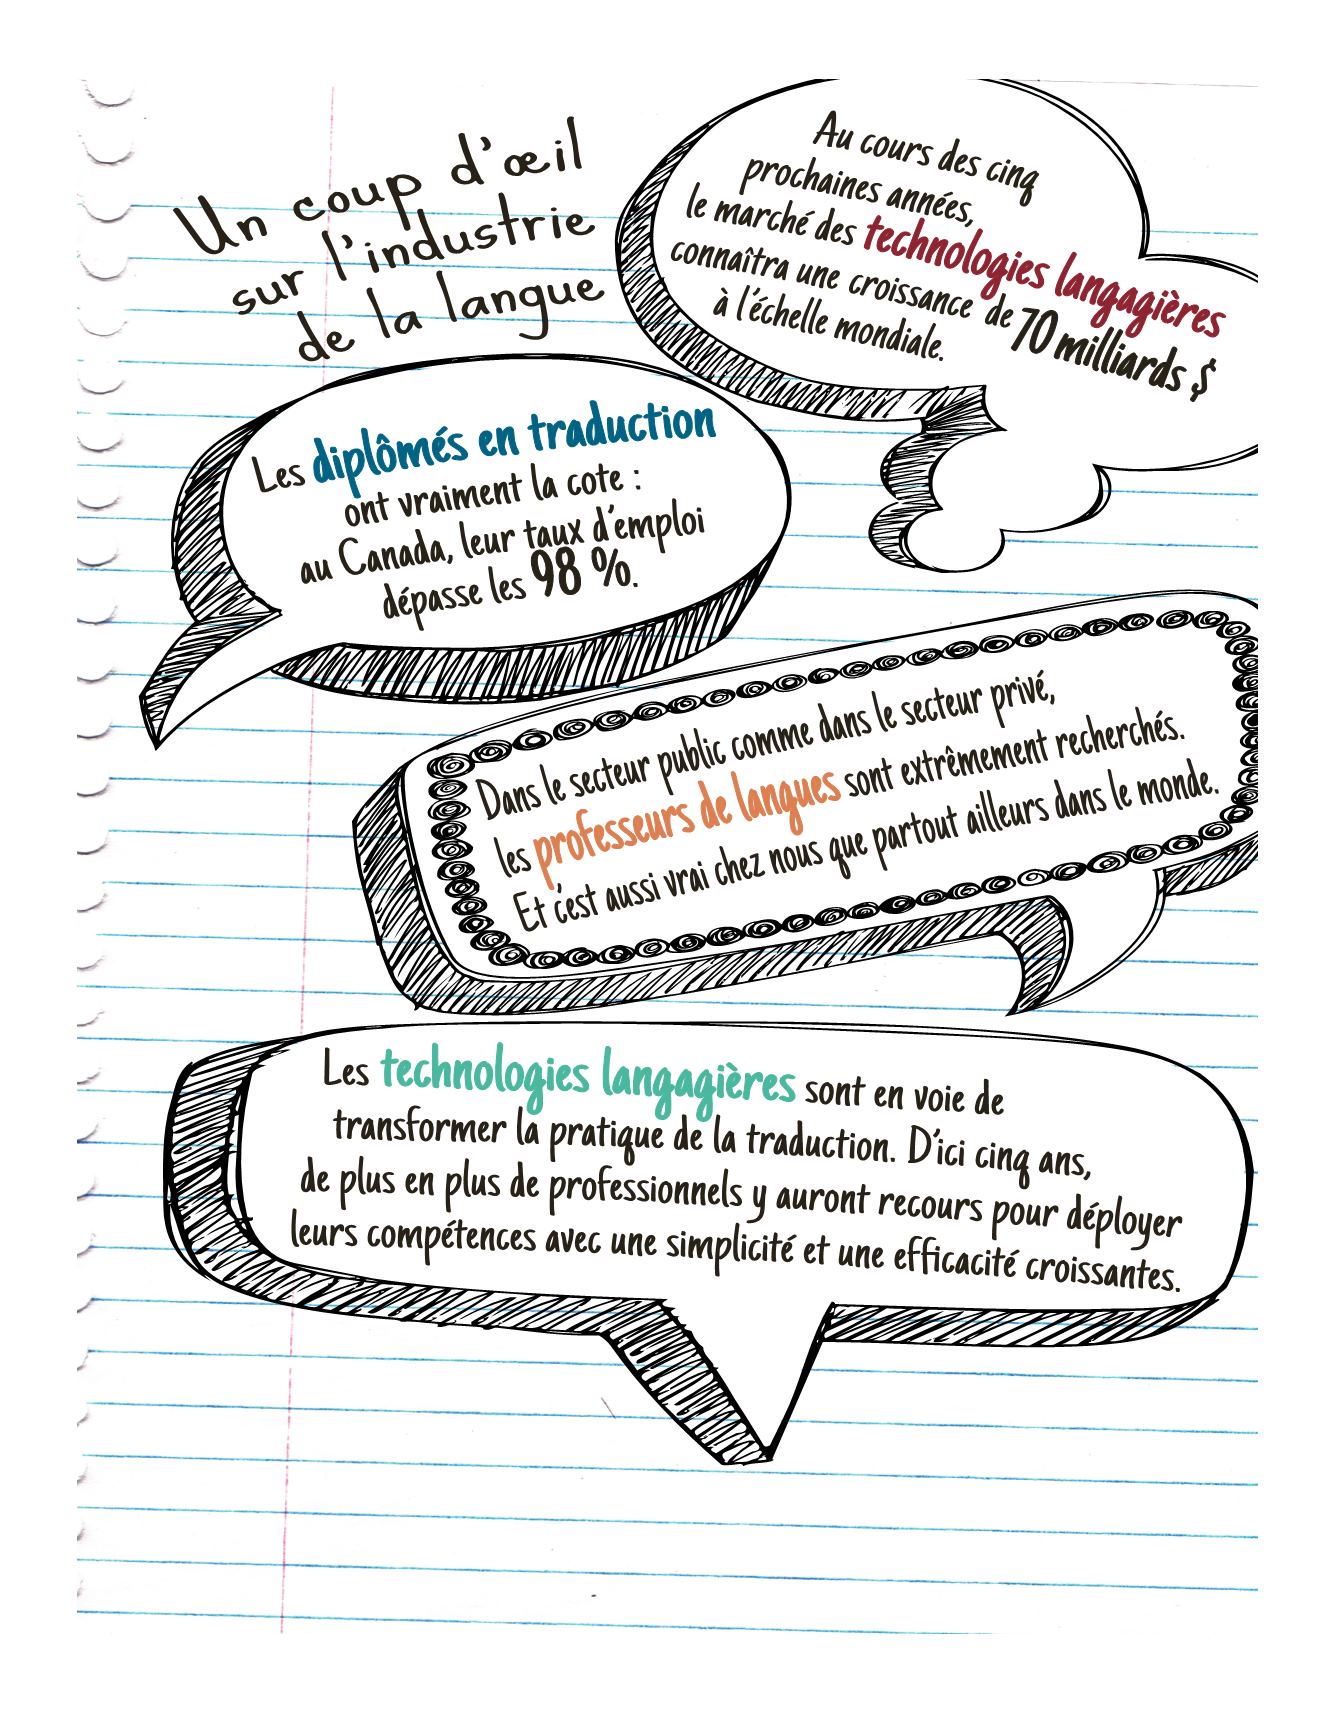 Un coup d'œil
sur l'industrie
de la langue
Au cours des cinq
prochaines années,
le marché des technologies langagières
connaîtra une croissance de 70 milliards $
à l'échelle mondiale.
Les diplômés en traduction
ont vraiment la cote :
au Canada, leur taux d'emploi
dépasse les 98 %.
Dans le secteur public comme dans le secteur privé,
les professeurs de langues sont extrêmement recherchés.
Et c'est aussi vrai chez nous que partout ailleurs dans le monde.
Les technologies langagières sont en voie de
transformer la pratique de la traduction. D'ici cinq ans,
de plus en plus de professionnels y auront recours pour déployer
leurs compétences avec une simplicité et une efficacité croissantes.